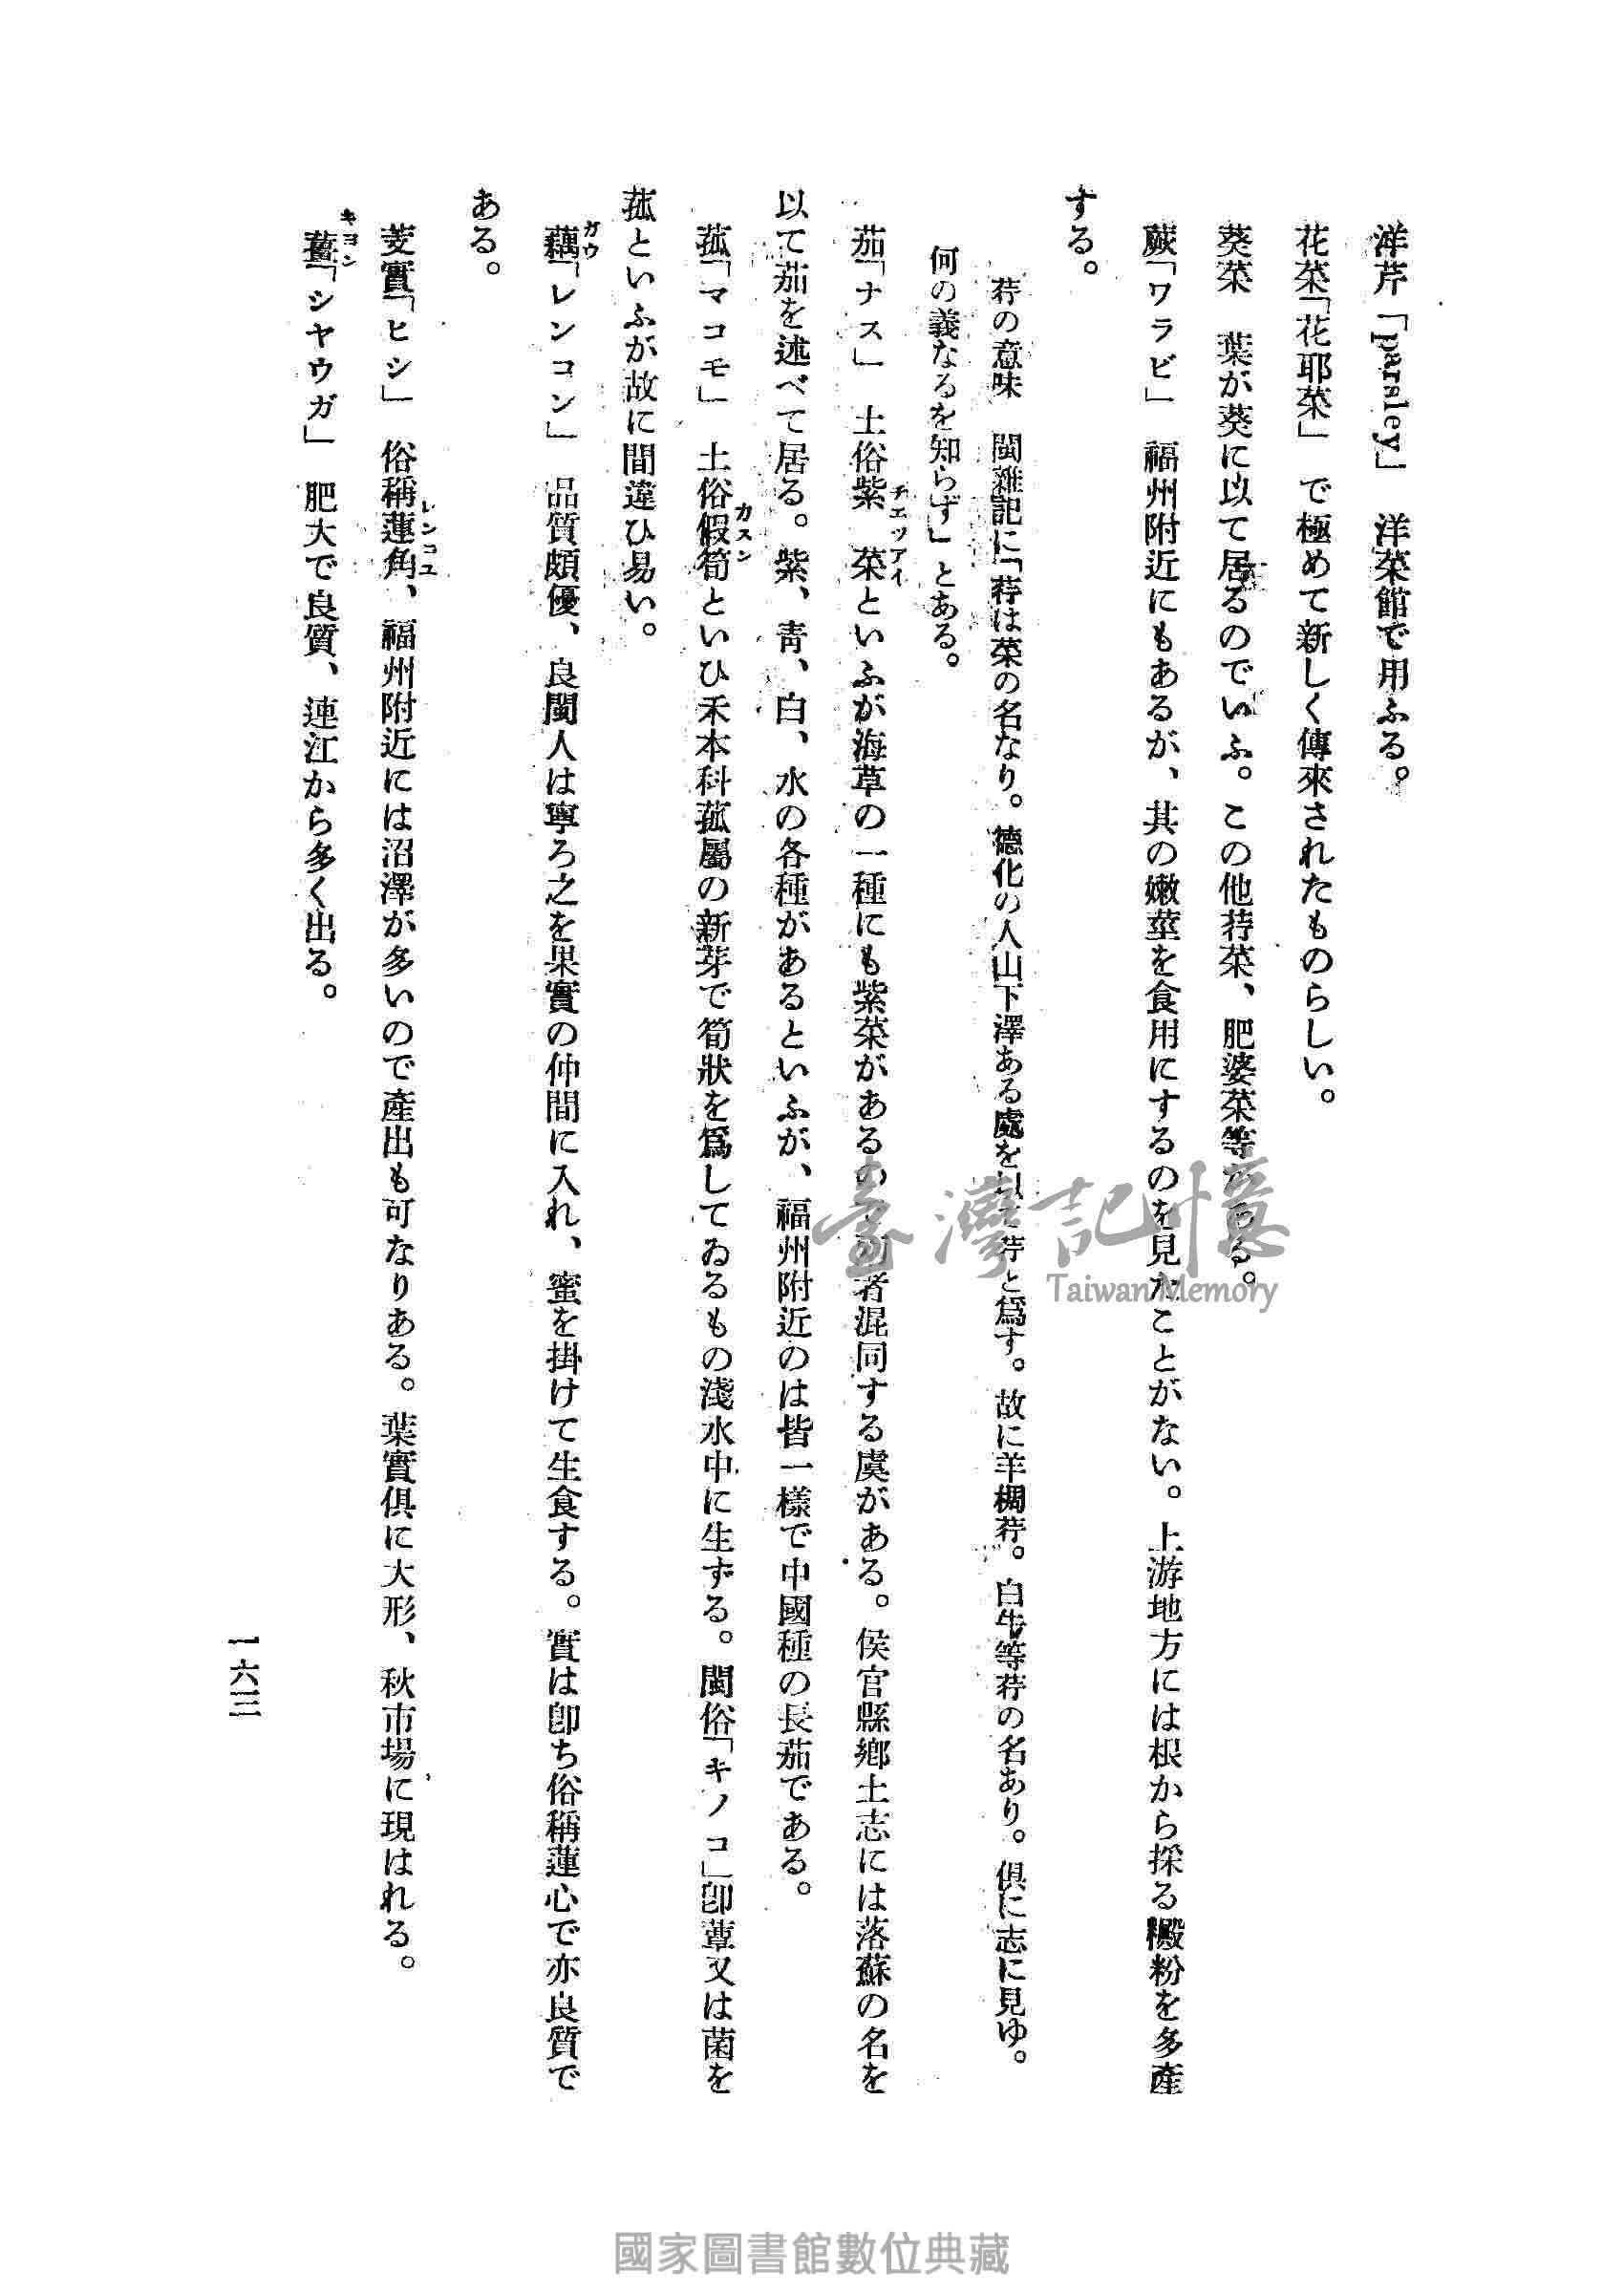 洋芹「parsley」　洋菜館で用ふる。
花菜「花耶菜」　で極めて新しく傳來されたものらしい。
葵菜　葉が葵に以て居るのでいふ。この他荇菜、肥婆菜等がある。
蕨「ワラビ」　福州附近にもあるが、其の嫩莖を食用にするのを見たことがない。上游地方には根から採る澱粉を多產
する。
荇の意味　閩雜記に「荇は菜の名なり。德化の人山下澤ある處を以て荇と爲す。故に羊椆荇。白牛等荇の名あり。俱に志に見ゆ。
何の義なるを知らず」とある。
茄「ナス」　土俗紫菜といふが海草の一種にも紫菜があるので両者混同する虞がある。侯官縣鄕土志には落蘇の名を
チエツアイ
以て茄を述べて居る。紫、靑、白、水の各種があるといふが、福州附近のは皆一樣で中國種の長茄である。
菰「マコモ」　土俗假筍といひ禾本科菰屬の新芽で筍狀を爲してゐるもの淺水中に生ずる。閩俗「キノコ」卽蕈又は菌を
カスン
菰といふが故に間違ひ易い。
藕「レンコン」　品質頗優、良閩人は寧ろ之を果實の仲間に入れ、蜜を掛けて生食する。實は卽ち俗稱蓮心で亦良質で
ガウ
ある。
菱實「ヒシ」　俗稱蓮角、福州附近には沼澤が多いので產出も可なりある。葉實俱に大形、秋市場に現はれる。
レンコユ
薑「シヤウガ」　肥大で良質、連江から多く出る。
キヨン
一六三
臺灣記憶
Taiwan Memory
國家圖書館數位典藏